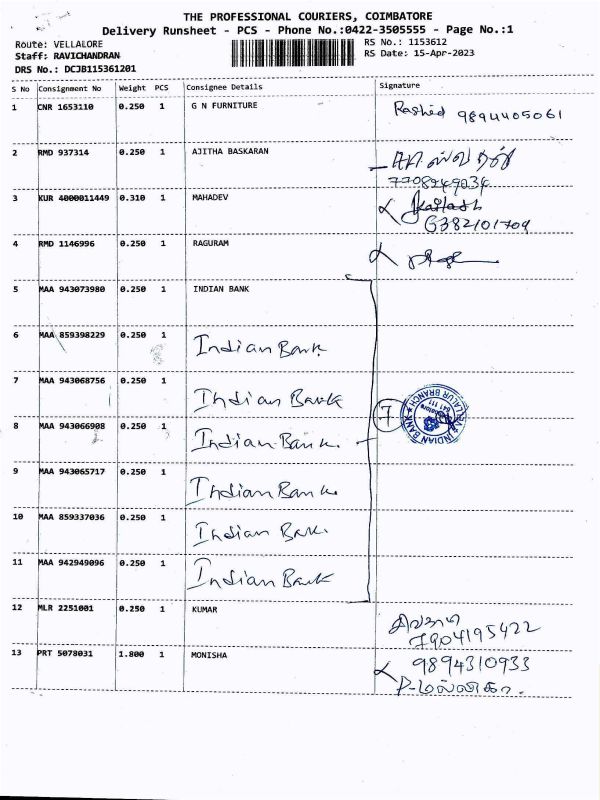 THE PROFESSIONAL COURIERS, COIMBATORE
Delivery Runsheet - PCS - Phone No.:0422-3505555 - Page No.:1
Route: VELLALORE
RS No.: 1153612
Staff: RAVICHANDRAN
RS Date: 15-Apr-2023
DRS No.: DCJB115361201
S No Consignment No Weight PCS Consignee Details Signature
1 CNR 1653110 0.250 1 G N FURNITURE Rashid 9894405061
2 RMD 937314 0.250 1 AJITHA BASKARAN
7708249034
3 KUR 4000011449 0.310 1 MAHADEV
6382101709
4 RMD 1146996 0.250 1 RAGURAM
5 MAA 943073980 0.250 1 INDIAN BANK
6 MAA 859398229 0.250 1 Indian Bank
7 MAA 943068756 0.250 1 Indian Bank
7
8 MAA 943066908 0.250 1 Indian Bank.
9 MAA 943065717 0.250 1 Indian Bank.
10 MAA 859337036 0.250 1 Indian Bank.
11 MAA 942949096 0.250 1 Indian Bank
12 MLR 2251001 0.250 1 KUMAR
7904195422
13 PRT 5078031 1.800 1 MONISHA 9894310933
P-மல்லிகா.